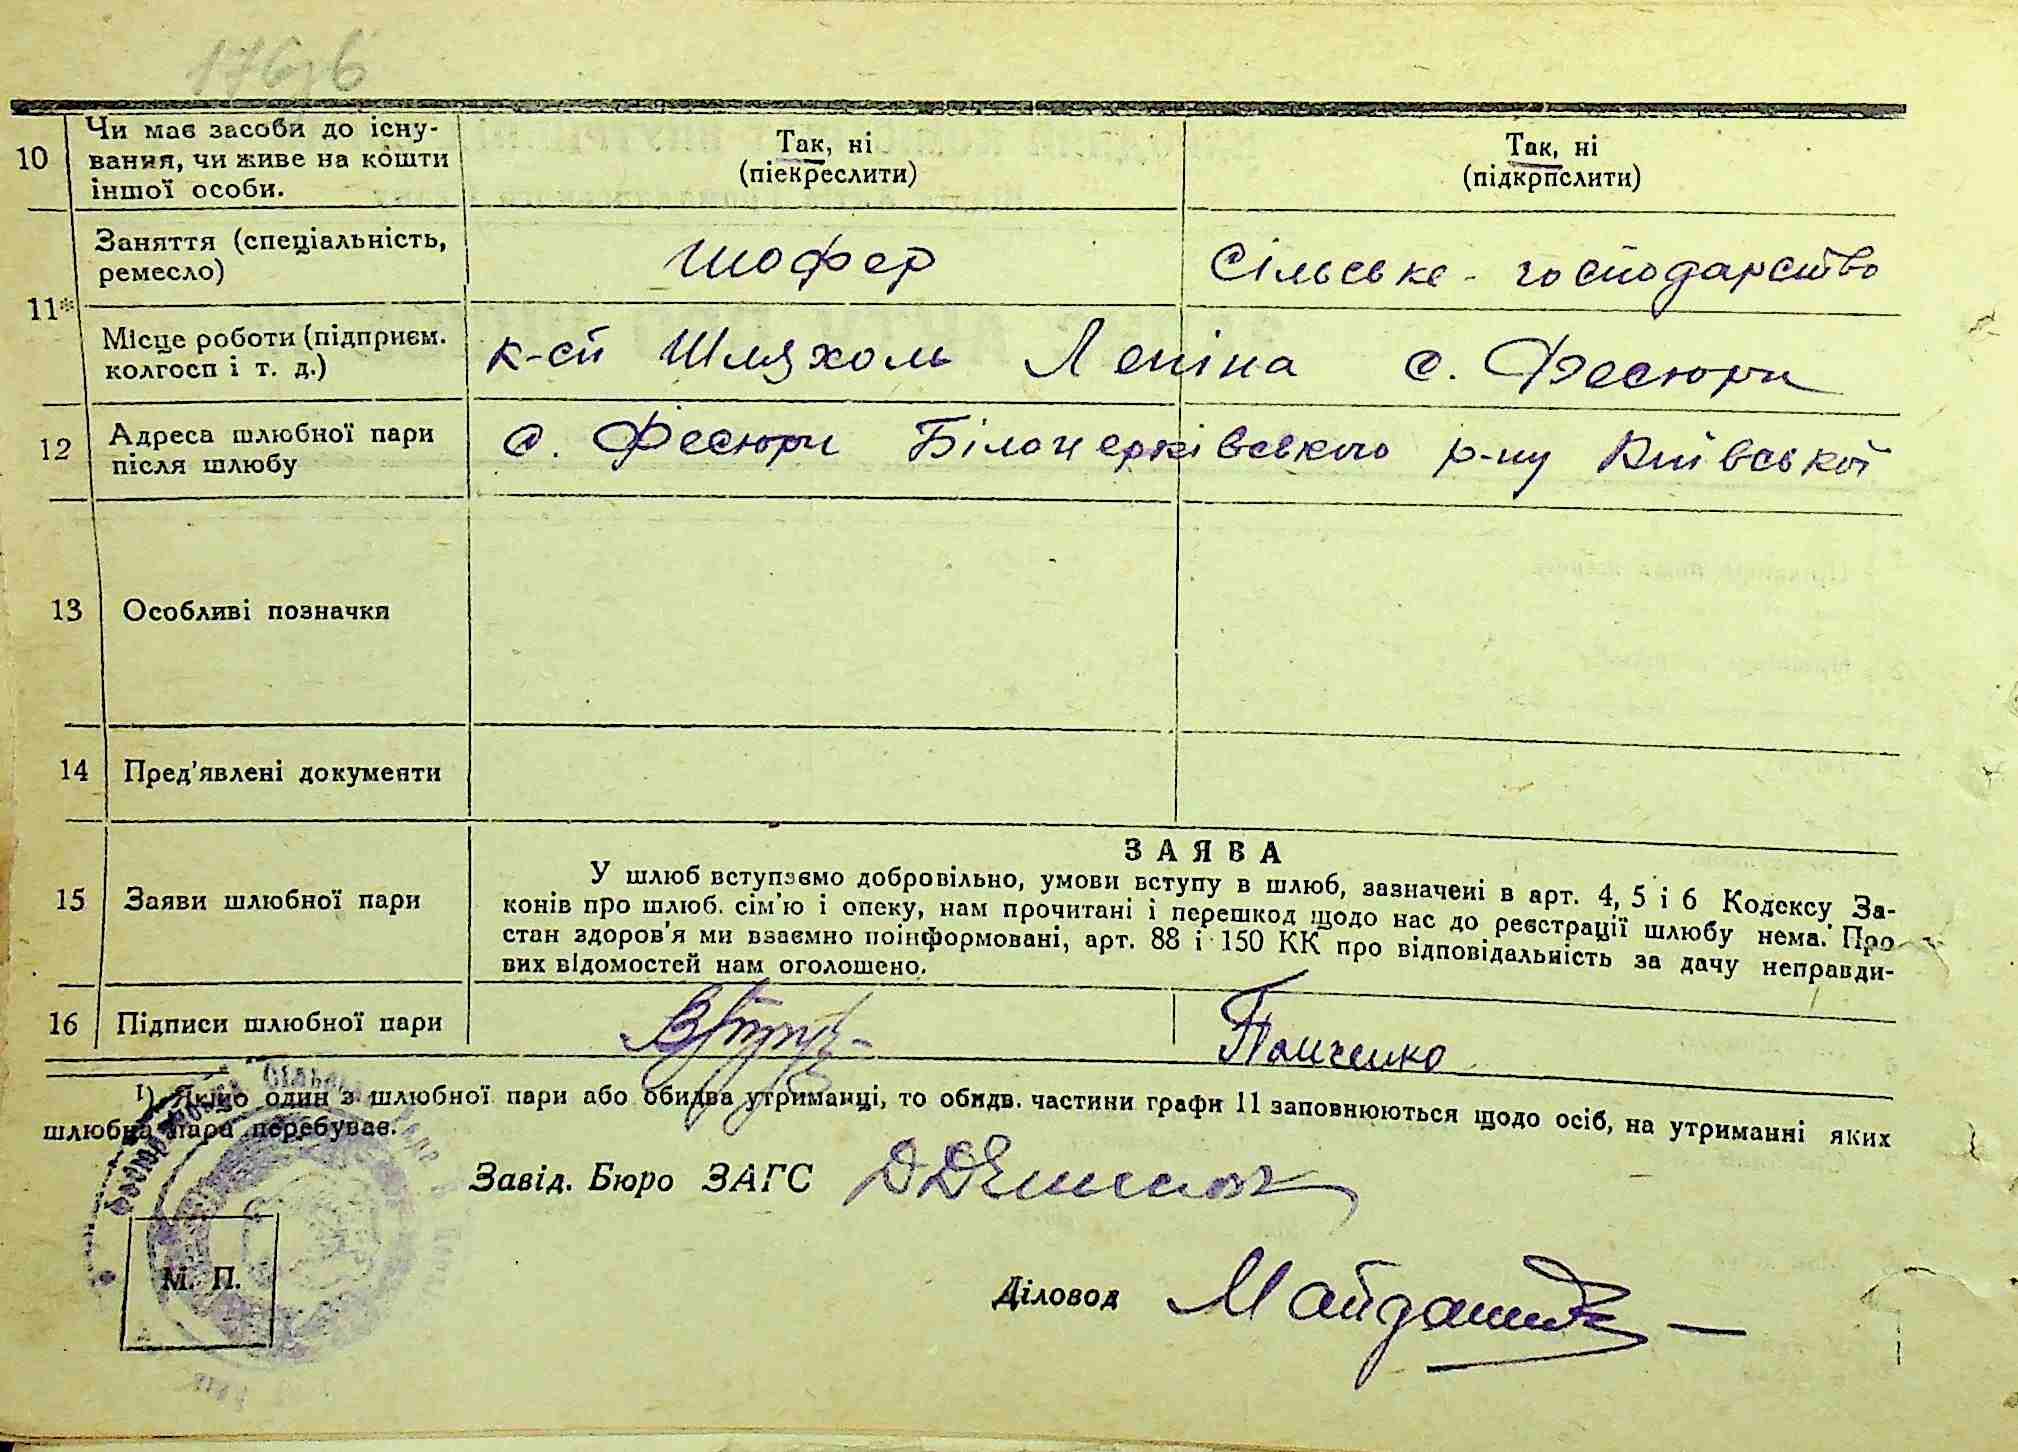 176зв
10 Чи має засоби до існу-
вання, чи живе на кошти
іншої особи.
Так, ні
(піекреслити)
Так, ні
(підкрпслити)
11* Заняття (спеціальність,
ремесло)
шофер
Сільське - господарство
Місце роботи (підприєм.
колгосп і т. д.)
к-сп Шляхом Леніна с. Фесюри
12 Адреса шлюбної пари
після шлюбу
с. Фесюри Білоцерківського р-ну Київської
13 Особливі позначки
14 Пред'явлені документи
15 Заяви шлюбної пари
ЗАЯВА
У шлюб вступаємо добровільно, умови вступу в шлюб, зазначені в арт. 4, 5 і 6 Кодексу За-
конів про шлюб. сім'ю і опеку, нам прочитані і перешкод щодо нас до реєстрації шлюбу нема. Про
стан здоров'я ми взаємно поінформовані, арт. 88 і 150 КК про відповідальність за дачу неправди-
вих відомостей нам оголошено.
16 Підписи шлюбної пари
Панченко
1) Якщо один з шлюбної пари або обидва утриманці, то обидв. частини графи 11 заповнюються щодо осіб, на утриманні яких
шлюбна пара перебуває.
Завід. Бюро ЗАГС
М. П.
Діловод